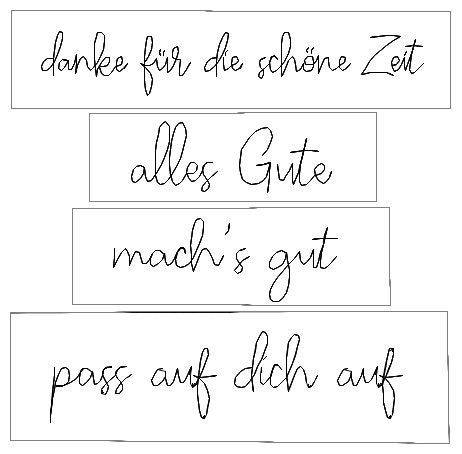 danke für die schöne Zeit
alles Gute
mach's gut
pass auf dich auf